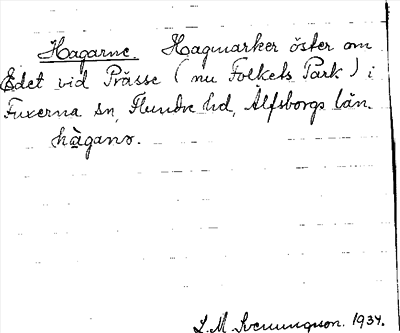 Hagarne. Hagmarker öster om
Edet vid Prässe (nu Folkets Park) i
Fuxerna sn, Flundre hd, Älfsborgs län.
hàganɘ.
L. M. Svenungsson. 1934.